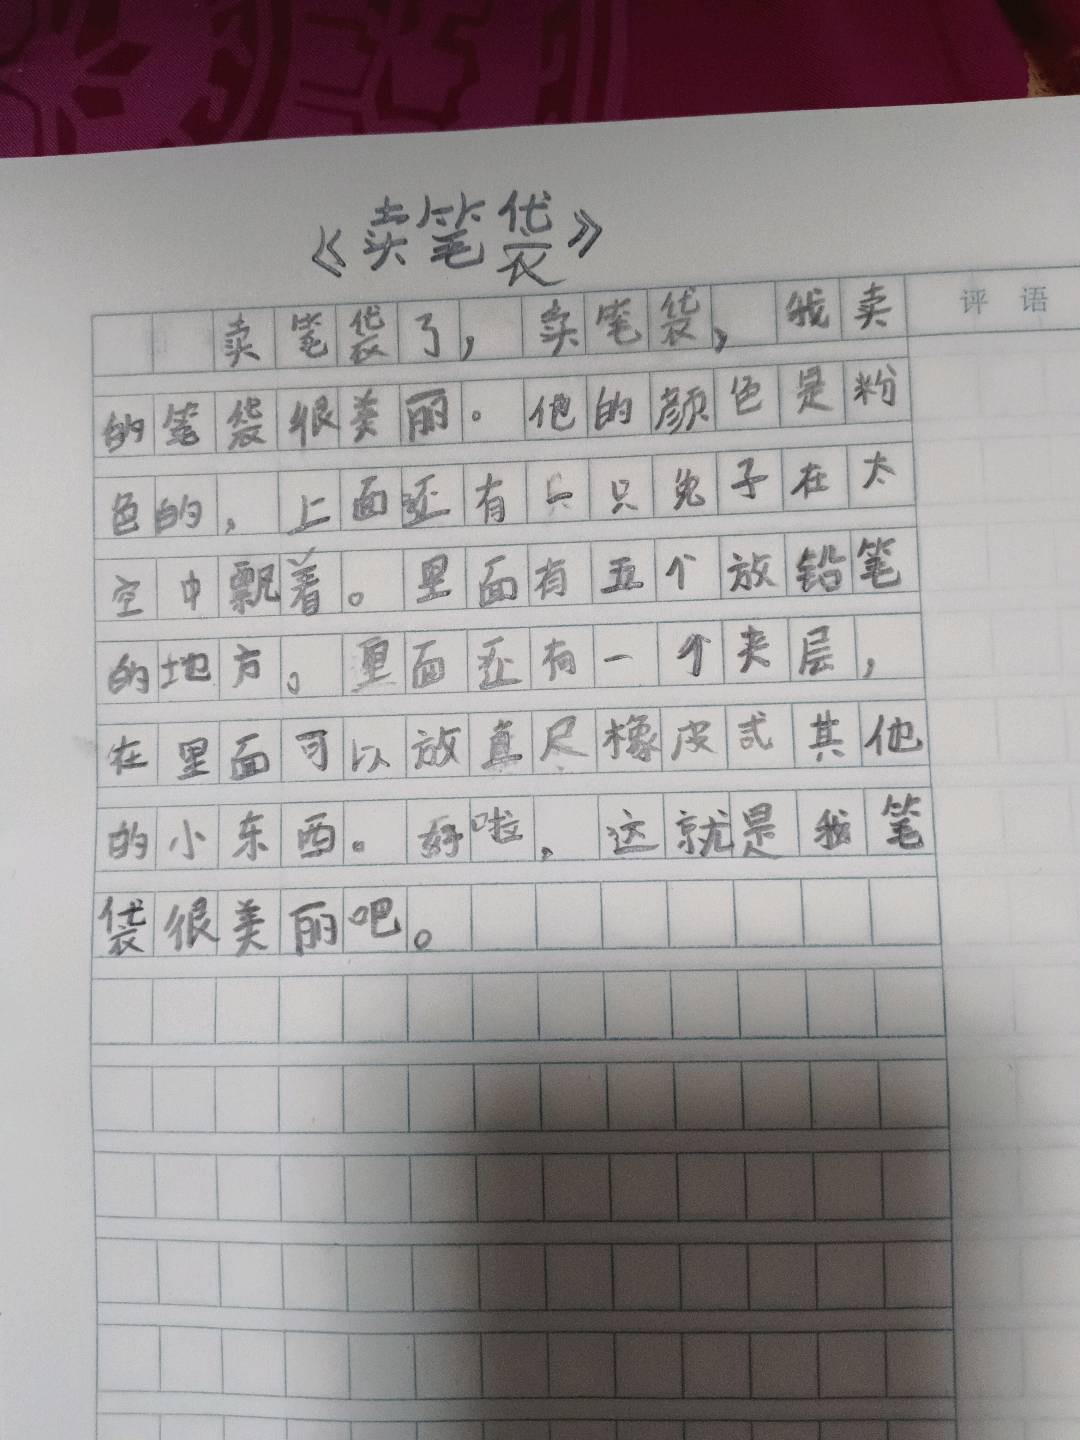 《卖笔袋》
评 语
卖笔袋了，卖笔袋，我卖
的笔袋很美丽。他的颜色是粉
色的，上面还有一只兔子在太
空中飘着。里面有五个放铅笔
的地方。里面还有一个夹层，
在里面可以放直尺橡皮或其他
的小东西。好啦，这就是我笔
袋很美丽吧。